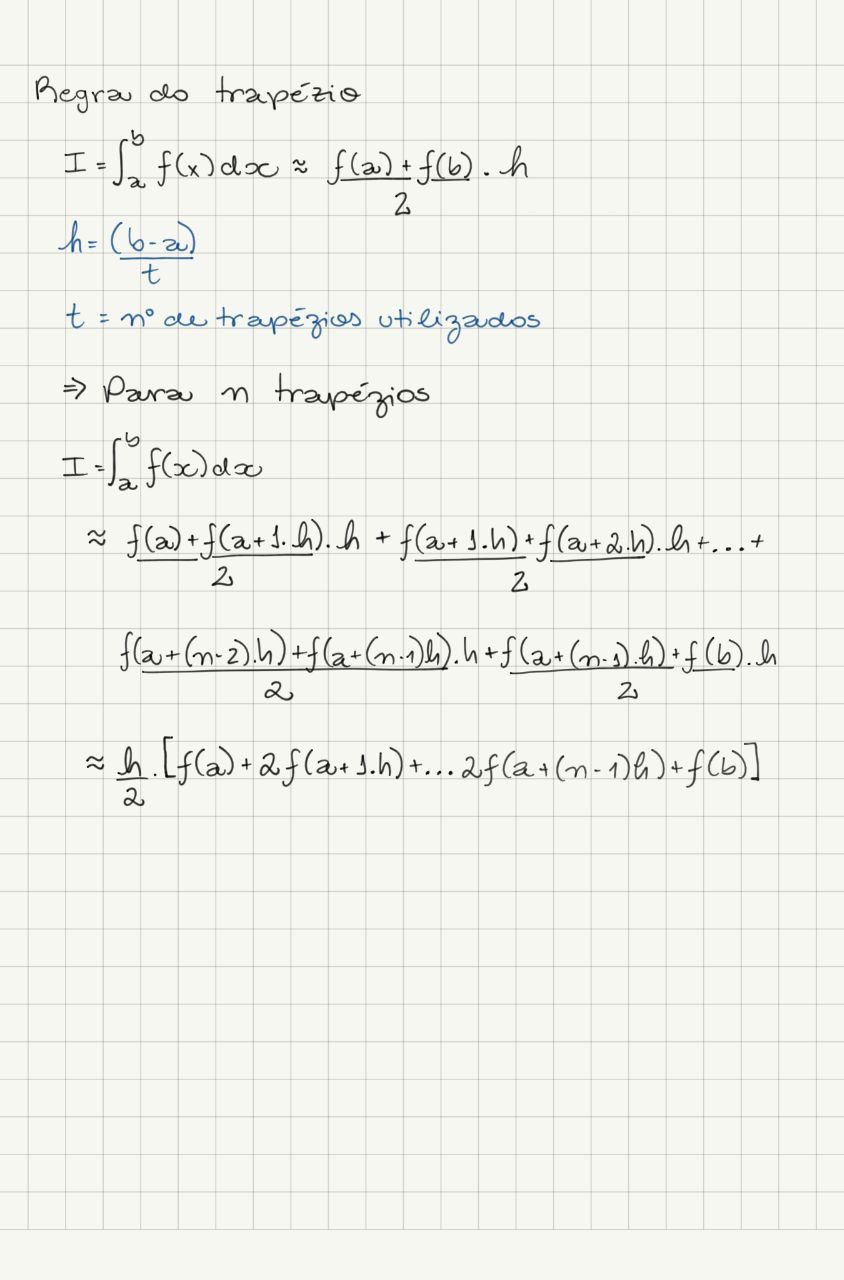 Regra do trapézio
I = ∫_a^b f(x) dx ≈ (f(a) + f(b))/2 . h
h = (b-a)/t
t = nº de trapézios utilizados
⇒ Para n trapézios
I = ∫_a^b f(x) dx
≈ (f(a) + f(a+1.h))/2 . h + (f(a+1.h) + f(a+2.h))/2 . h + ... +
(f(a+(n-2).h) + f(a+(n-1)h))/2 . h + (f(a+(n-1).h) + f(b))/2 . h
≈ h/2 . [f(a) + 2f(a+1.h) + ... 2f(a+(n-1)h) + f(b)]